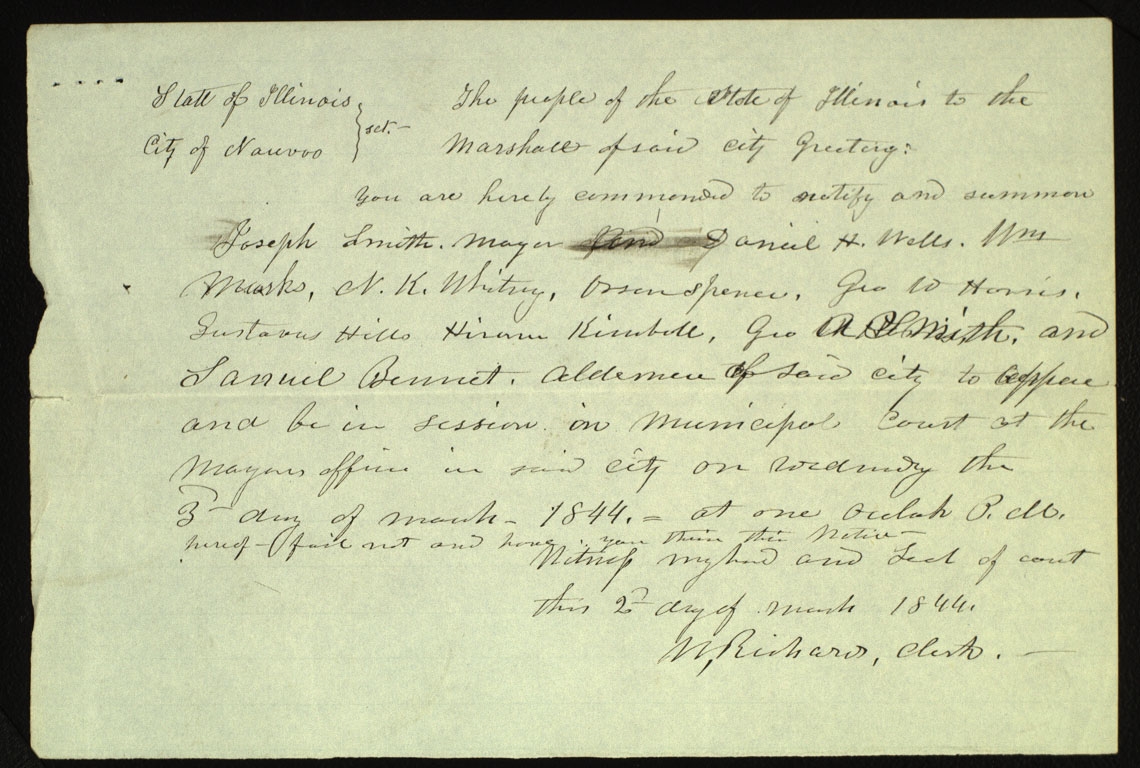 State of Illinois } sct.— The people of the State of Illinois to the
City of Nauvoo Marshall of said city Greeting:
you are hereby commanded to notify and summon
Joseph Smith. Mayor Daniel H. Wells. Wm
Marks, N. K. Whitney, Orson Spencer, Geo W Harris.
Gustavus Hills Hiram Kimball, Geo A. Smith, and
Samuel Bennet. Aldermen of said city to appear
and be in session in Municipal Court at the
Mayors office in said city on wednesday the
3d day of march— 1844. = at one oclock P. M.
hereof— fail not and have you then this Notice—
Witness my hand and seal of court
this 2d day of march 1844.
W, Richards, Clerk. —